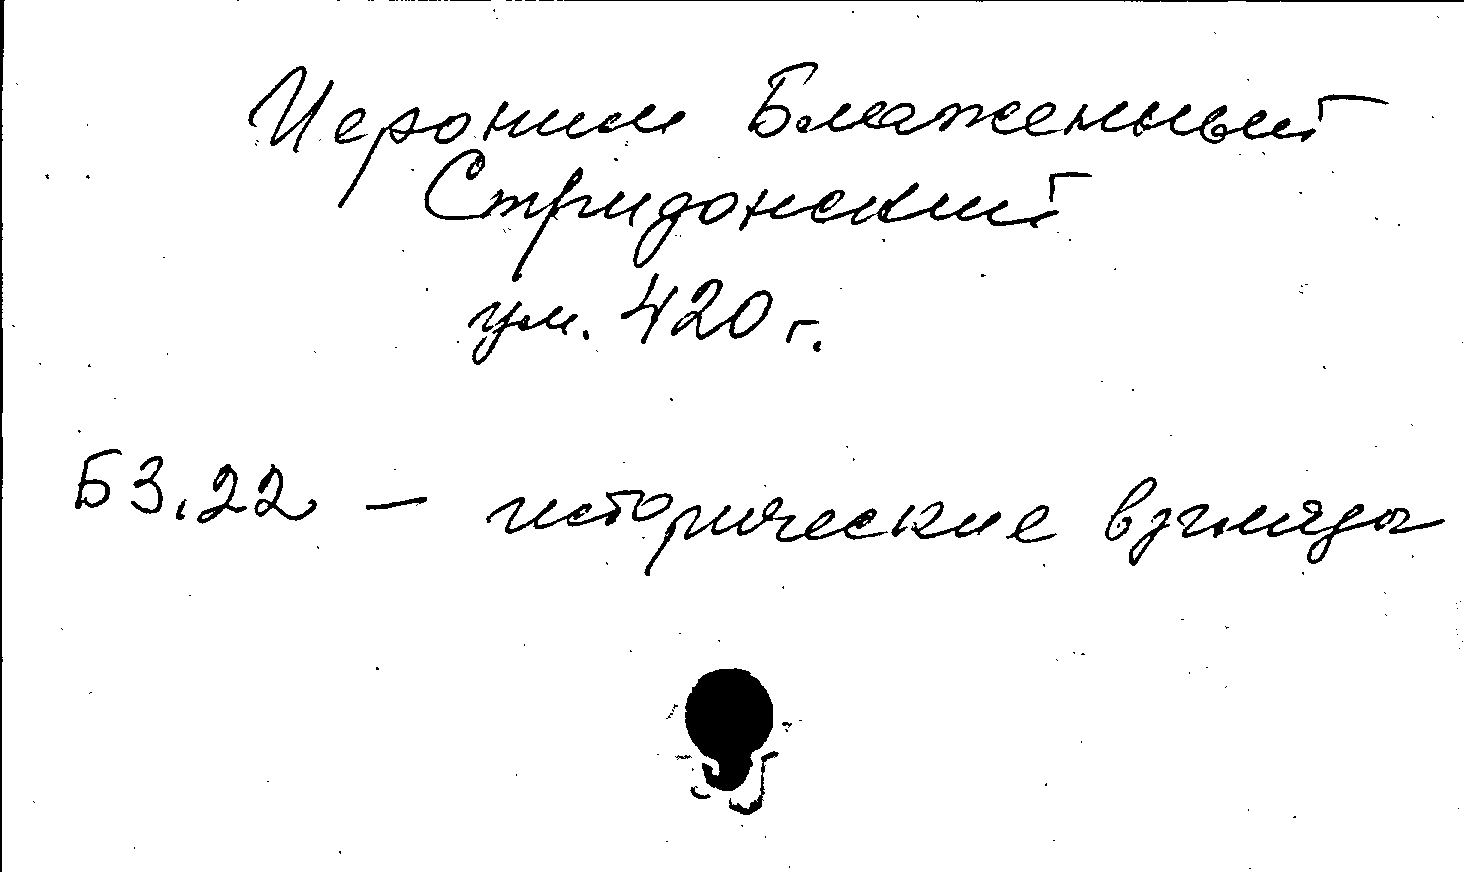 Иероним Блаженный
Стридонский
ум. 420 г.
Б3.22 — исторические взгляды